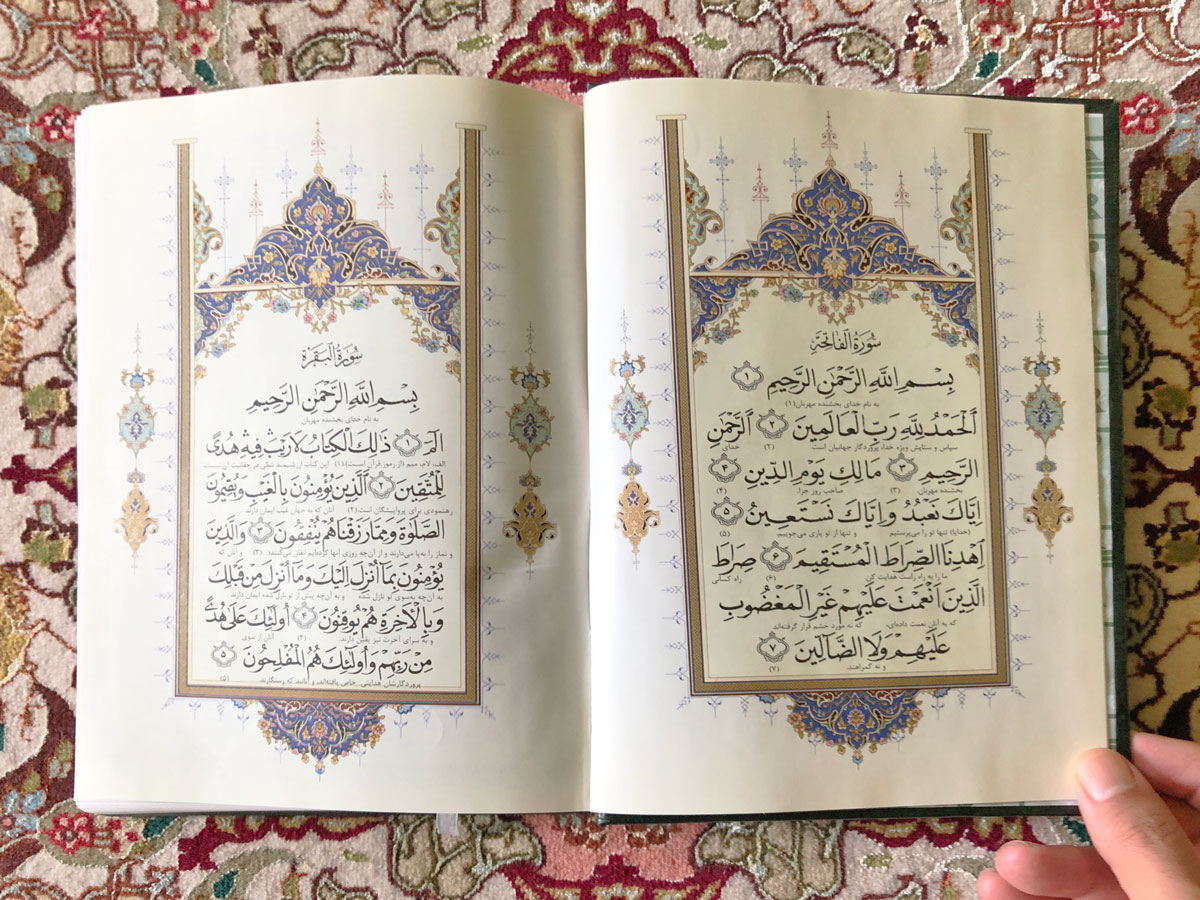 سُورَةُ الْفَاتِحَةِ
بِسْمِ اللَّهِ الرَّحْمَٰنِ الرَّحِيمِ ١
به نام خدای بخشنده مهربان (۱)
اَلْحَمْدُ لِلَّهِ رَبِّ الْعَالَمِينَ ٢ اَلرَّحْمَٰنِ
سپاس و ستایش ویژه خدا، پروردگار جهانیان است (۲) خدای
الرَّحِيمِ ٣ مَالِكِ يَوْمِ الدِّينِ ٤
بخشنده مهربان (۳) صاحب روز جزا (۴)
اِيَّاكَ نَعْبُدُ وَ اِيَّاكَ نَسْتَعِينُ ٥
(خدایا) تنها تو را می‌پرستیم و تنها از تو یاری می‌جوییم (۵)
اِهْدِنَا الصِّرَاطَ الْمُسْتَقِيمَ ٦ صِرَاطَ
ما را به راه راست هدایت کن (۶) راه کسانی
الَّذِينَ اَنْعَمْتَ عَلَيْهِمْ غَيْرِ الْمَغْضُوبِ
که به آنان نعمت داده‌ای، که نه مورد خشم قرار گرفته‌اند
عَلَيْهِمْ وَلَا الضَّالِّينَ ٧
و نه گمراهند (۷)
سُورَةُ الْبَقَرَةِ
بِسْمِ اللَّهِ الرَّحْمَٰنِ الرَّحِيمِ
به نام خدای بخشنده مهربان
الٓمٓ ١ ذَٰلِكَ الْكِتَابُ لَا رَيْبَ فِيهِ هُدًى
الف، لام، میم (از رموز قرآن است) (۱) این کتاب ارزشمند شکی در حقانیت آن نیست
لِلْمُتَّقِينَ ٢ اَلَّذِينَ يُؤْمِنُونَ بِالْغَيْبِ وَ يُقِيمُونَ
رهنمودی برای پرواپیشگان است (۲) آنان که به جهان غیب ایمان دارند
الصَّلَاةَ وَ مِمَّا رَزَقْنَاهُمْ يُنْفِقُونَ ٣ وَالَّذِينَ
و نماز را به‌پا می‌دارند و از آن‌چه روزی آنها کرده‌ایم انفاق می‌کنند (۳) و آنان که
يُؤْمِنُونَ بِمَا اُنْزِلَ اِلَيْكَ وَ مَا اُنْزِلَ مِنْ قَبْلِكَ
به آن‌چه به‌سوی تو نازل شده و به آن‌چه پیش از تو نازل شده ایمان دارند
وَ بِالْاٰخِرَةِ هُمْ يُوقِنُونَ ٤ اُولَٰئِكَ عَلَىٰ هُدًى
و به سرای آخرت نیز یقین دارند (۴) آنان از سوی
مِنْ رَبِّهِمْ وَ اُولَٰئِكَ هُمُ الْمُفْلِحُونَ ٥
پروردگارشان هدایتی خاص یافته‌اند، و آنانند که رستگارند (۵)